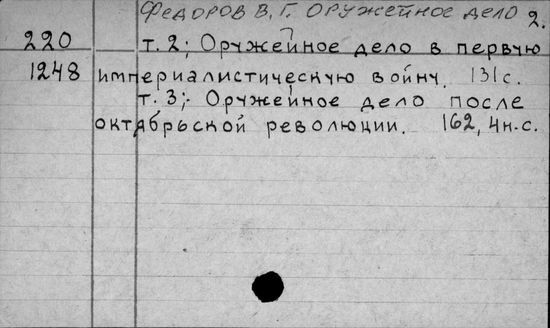 Федоров В. Г. Оружейное дело 2.
220 т. 2; Оружейное дело в первую
1248 империалистическую войну. 131с.
т. 3; Оружейное дело после
октябрьской революции. 162, 4н.с.